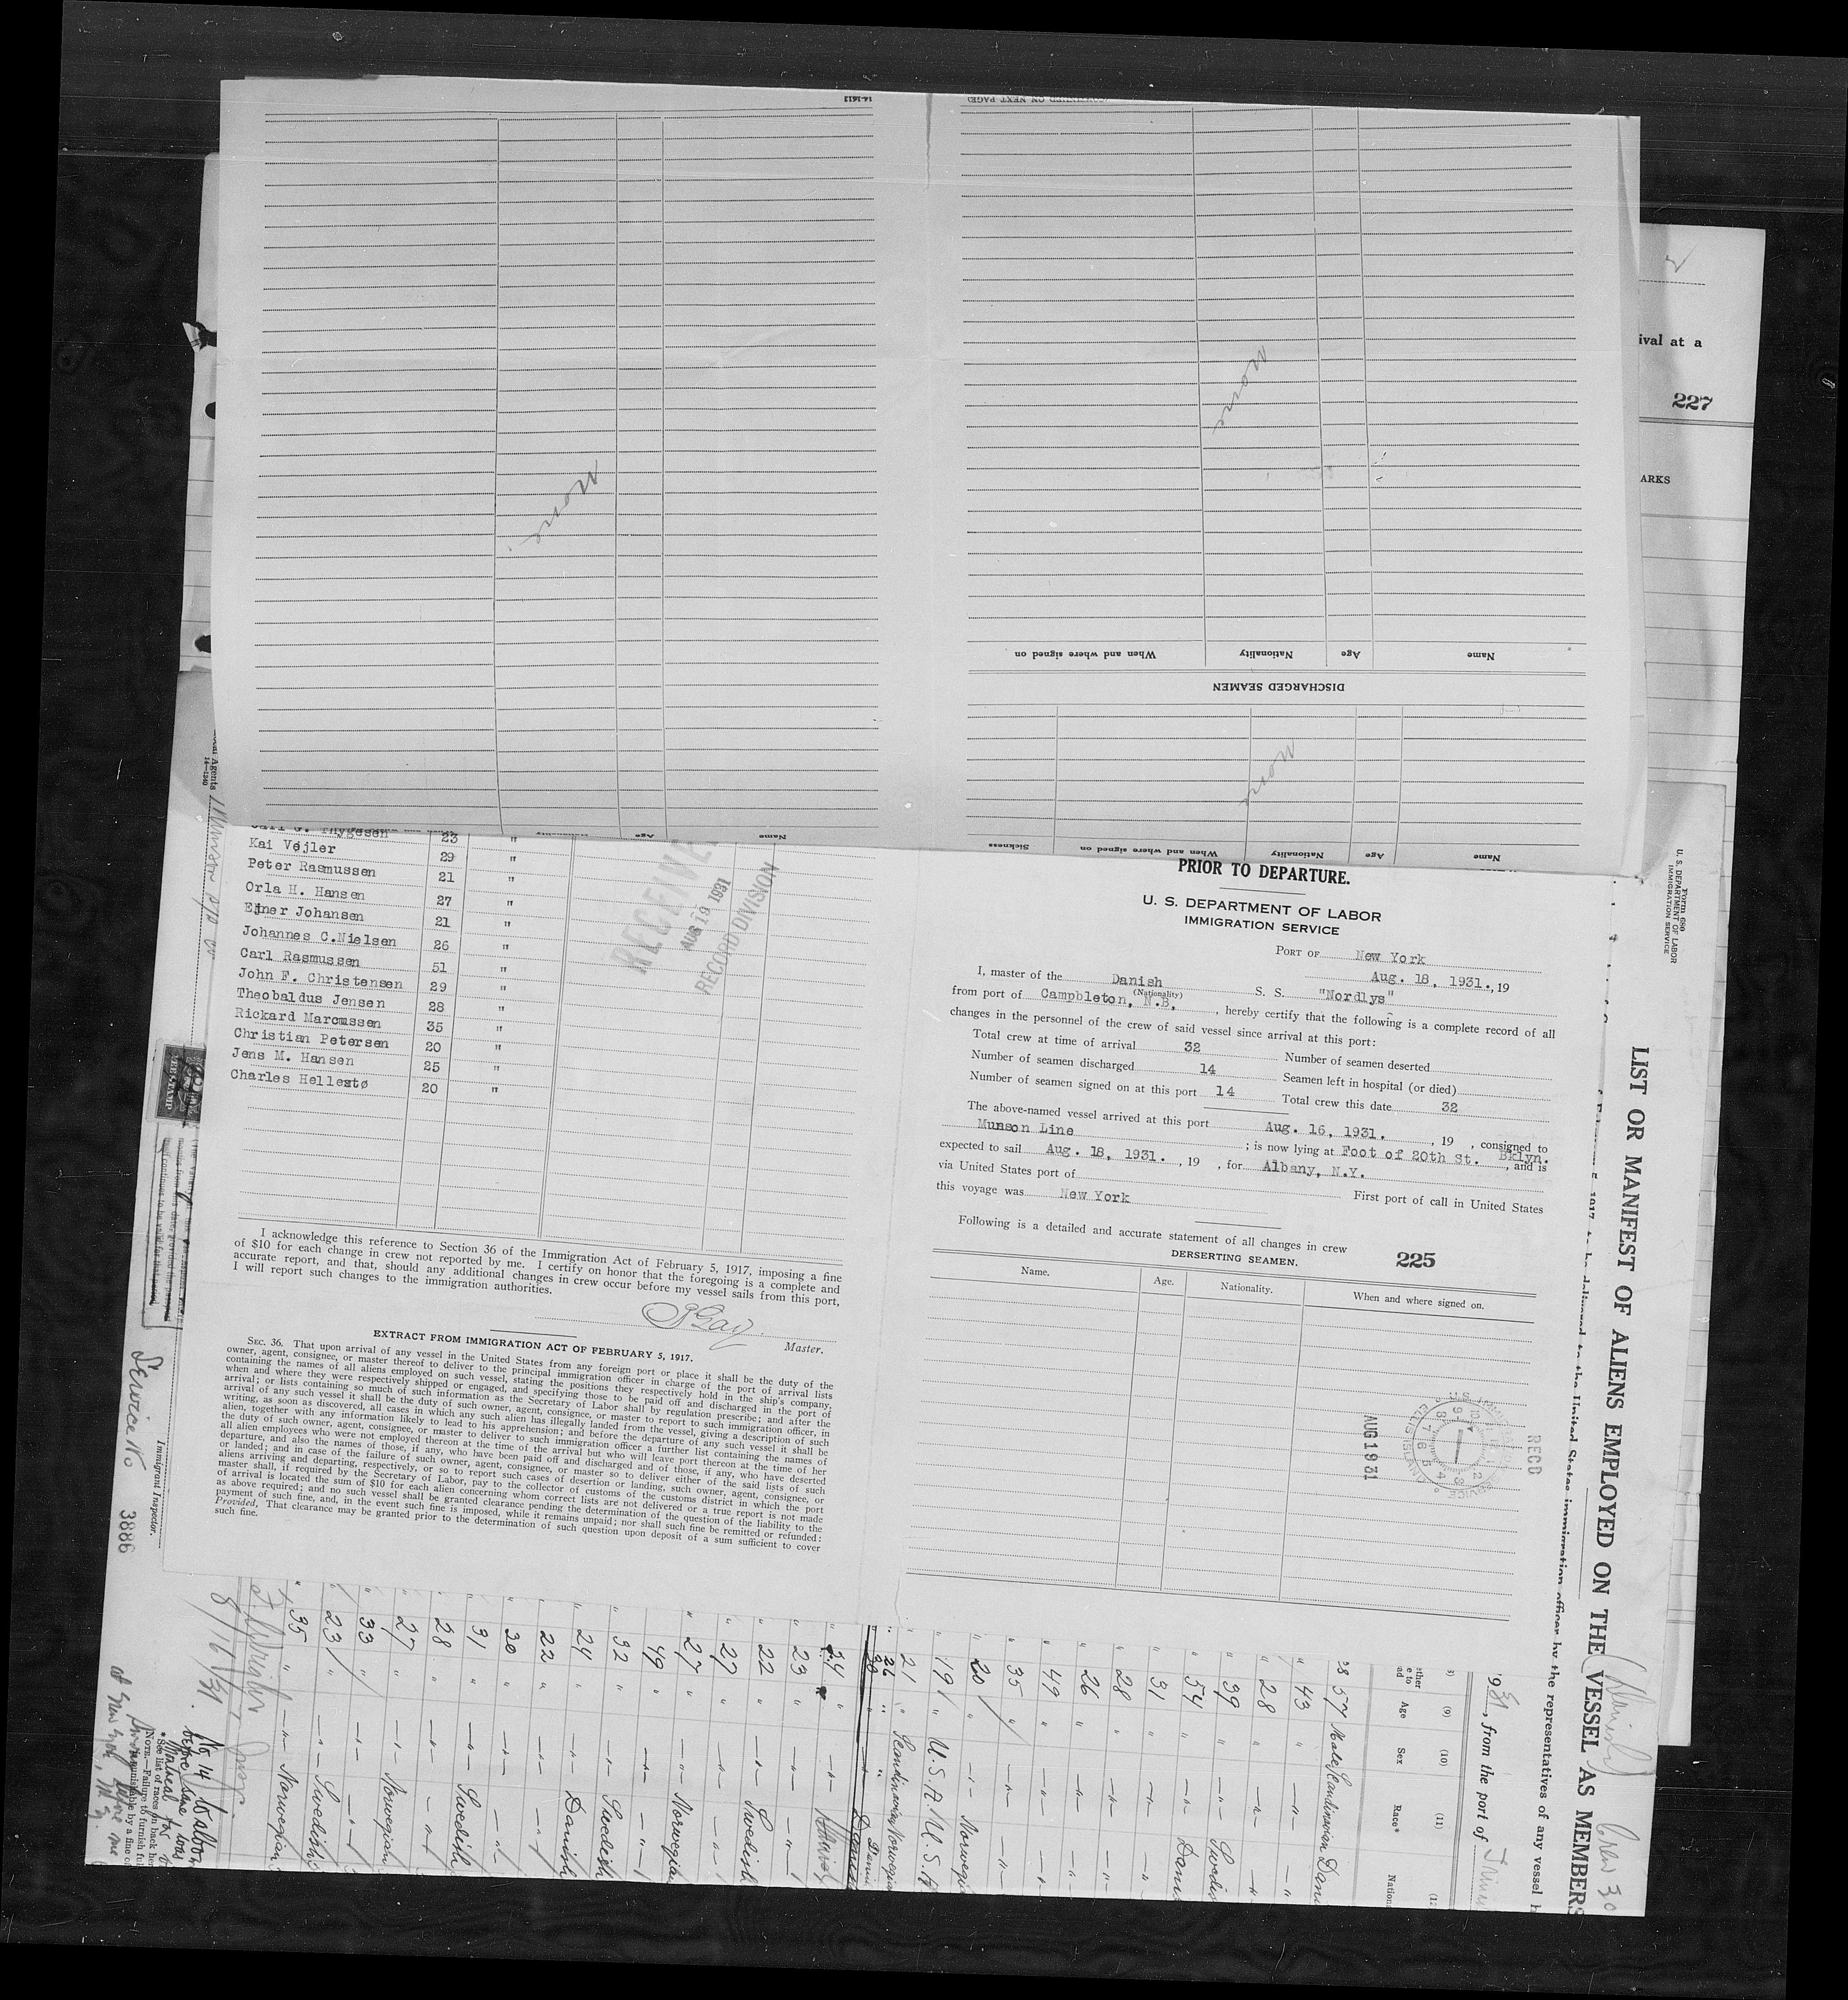 14-1413
(CONTINUED ON NEXT PAGE)
None
None
Name
Age
Nationality
When and where signed on
DISCHARGED SEAMEN
None
Name
Age
Nationality
When and where signed on
Sickness
Name
Age
Nationality
ival at a
227
ARKS
Carl G. Thygesen 23 "
Kai Vejler 29 "
Peter Rasmussen 21 "
Orla H. Hansen 27 "
Ejner Johansen 21 "
Johannes C.Nielsen 26 "
Carl Rasmussen 51 "
John F. Christensen 29 "
Theobaldus Jensen 28 "
Rickard Marcussen 35 "
Christian Petersen 20 "
Jens M. Hansen 25 "
Charles Hellestø 20 "
RECEIVED
AUG 19 1931
RECORD DIVISION
I acknowledge this reference to Section 36 of the Immigration Act of February 5, 1917, imposing a fine
of $10 for each change in crew not reported by me. I certify on honor that the foregoing is a complete and
accurate report, and that, should any additional changes in crew occur before my vessel sails from this port,
I will report such changes to the immigration authorities.
Master.
EXTRACT FROM IMMIGRATION ACT OF FEBRUARY 5, 1917.
SEC. 36. That upon arrival of any vessel in the United States from any foreign port or place it shall be the duty of the
owner, agent, consignee, or master thereof to deliver to the principal immigration officer in charge of the port of arrival lists
containing the names of all aliens employed on such vessel, stating the positions they respectively hold in the ship's company,
when and where they were respectively shipped or engaged, and specifying those to be paid off and discharged in the port of
arrival; or lists containing so much of such information as the Secretary of Labor shall by regulation prescribe; and after the
arrival of any such vessel it shall be the duty of such owner, agent, consignee, or master to report to such immigration officer, in
writing, as soon as discovered, all cases in which any such alien has illegally landed from the vessel, giving a description of such
alien, together with any information likely to lead to his apprehension; and before the departure of any such vessel it shall be
the duty of such owner, agent, consignee, or master to deliver to such immigration officer a further list containing the names of
all alien employees who were not employed thereon at the time of the arrival but who will leave port thereon at the time of her
departure, and also the names of those, if any, who have been paid off and discharged and of those, if any, who have deserted
or landed; and in case of the failure of such owner, agent, consignee, or master so to deliver either of the said lists of such
aliens arriving and departing, respectively, or so to report such cases of desertion or landing, such owner, agent, consignee, or
master shall, if required by the Secretary of Labor, pay to the collector of customs of the customs district in which the port
of arrival is located the sum of $10 for each alien concerning whom correct lists are not delivered or a true report is not made
as above required; and no such vessel shall be granted clearance pending the determination of the question of the liability to the
payment of such fine, and, in the event such fine is imposed, while it remains unpaid; nor shall such fine be remitted or refunded:
Provided, That clearance may be granted prior to the determination of such question upon deposit of a sum sufficient to cover
such fine.
PRIOR TO DEPARTURE.
U. S. DEPARTMENT OF LABOR
IMMIGRATION SERVICE
PORT OF New York
Aug. 18, 1931., 19
I, master of the Danish S. S. "Nordlys"
(Nationality)
from port of Campbleton, N.B, , hereby certify that the following is a complete record of all
changes in the personnel of the crew of said vessel since arrival at this port:
Total crew at time of arrival 32 Number of seamen deserted
Number of seamen discharged 14 Seamen left in hospital (or died)
Number of seamen signed on at this port 14 Total crew this date 32
The above-named vessel arrived at this port Aug. 16, 1931. , 19 , consigned to
Munson Line ; is now lying at Foot of 20th St. Bklyn. , and is
expected to sail Aug. 18, 1931. , 19 , for Albany, N.Y.
via United States port of First port of call in United States
this voyage was New York
Following is a detailed and accurate statement of all changes in crew
DERSERTING SEAMEN. 225
Name. Age. Nationality. When and where signed on.
AUG 19 31
RECD
Form 680
U. S. DEPARTMENT OF LABOR
IMMIGRATION SERVICE
LIST OR MANIFEST OF ALIENS EMPLOYED ON THE VESSEL AS MEMBERS
(Danish) Crew 30
5, 1917, to be delivered to the United States immigration officer by the representatives of any vessel
, from the port of
Age Sex Race* Nation
(9) (10) (11) (12
57 Male Scandinavian Dani
43
28
39 Swedis
54 Danis
31
28
26
49
35
20 Norwegi
19 U.S.A U.S.A
21 Scandinavian Norwegian
26 Dani
24
23
22 Swedish
27
27 Norwegian
49
32 Swedish
24 Danish
22
30
31 Swedish
28
27 Norwegian
33
23 Swedish
35 Norwegian
8/16/31
Agents
14-1240
Immigrant Inspector.
Service No 3886
No. 14
at New York, N.Y.
before me